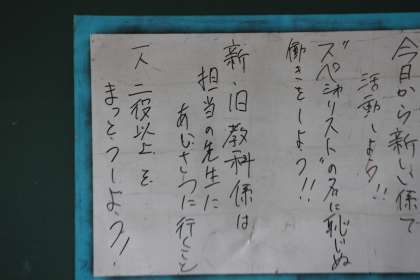 今日から新しい係で
活動しよう!!
スペシャリストの名に恥じぬ
働きをしよう!!
新・旧教科係は
担当の先生に
あいさつに行くこと
一人二役以上を
まっとうしよう!